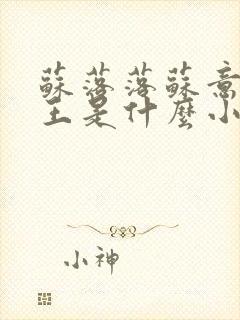 蘇落落蘇意
王是什麼小
小神